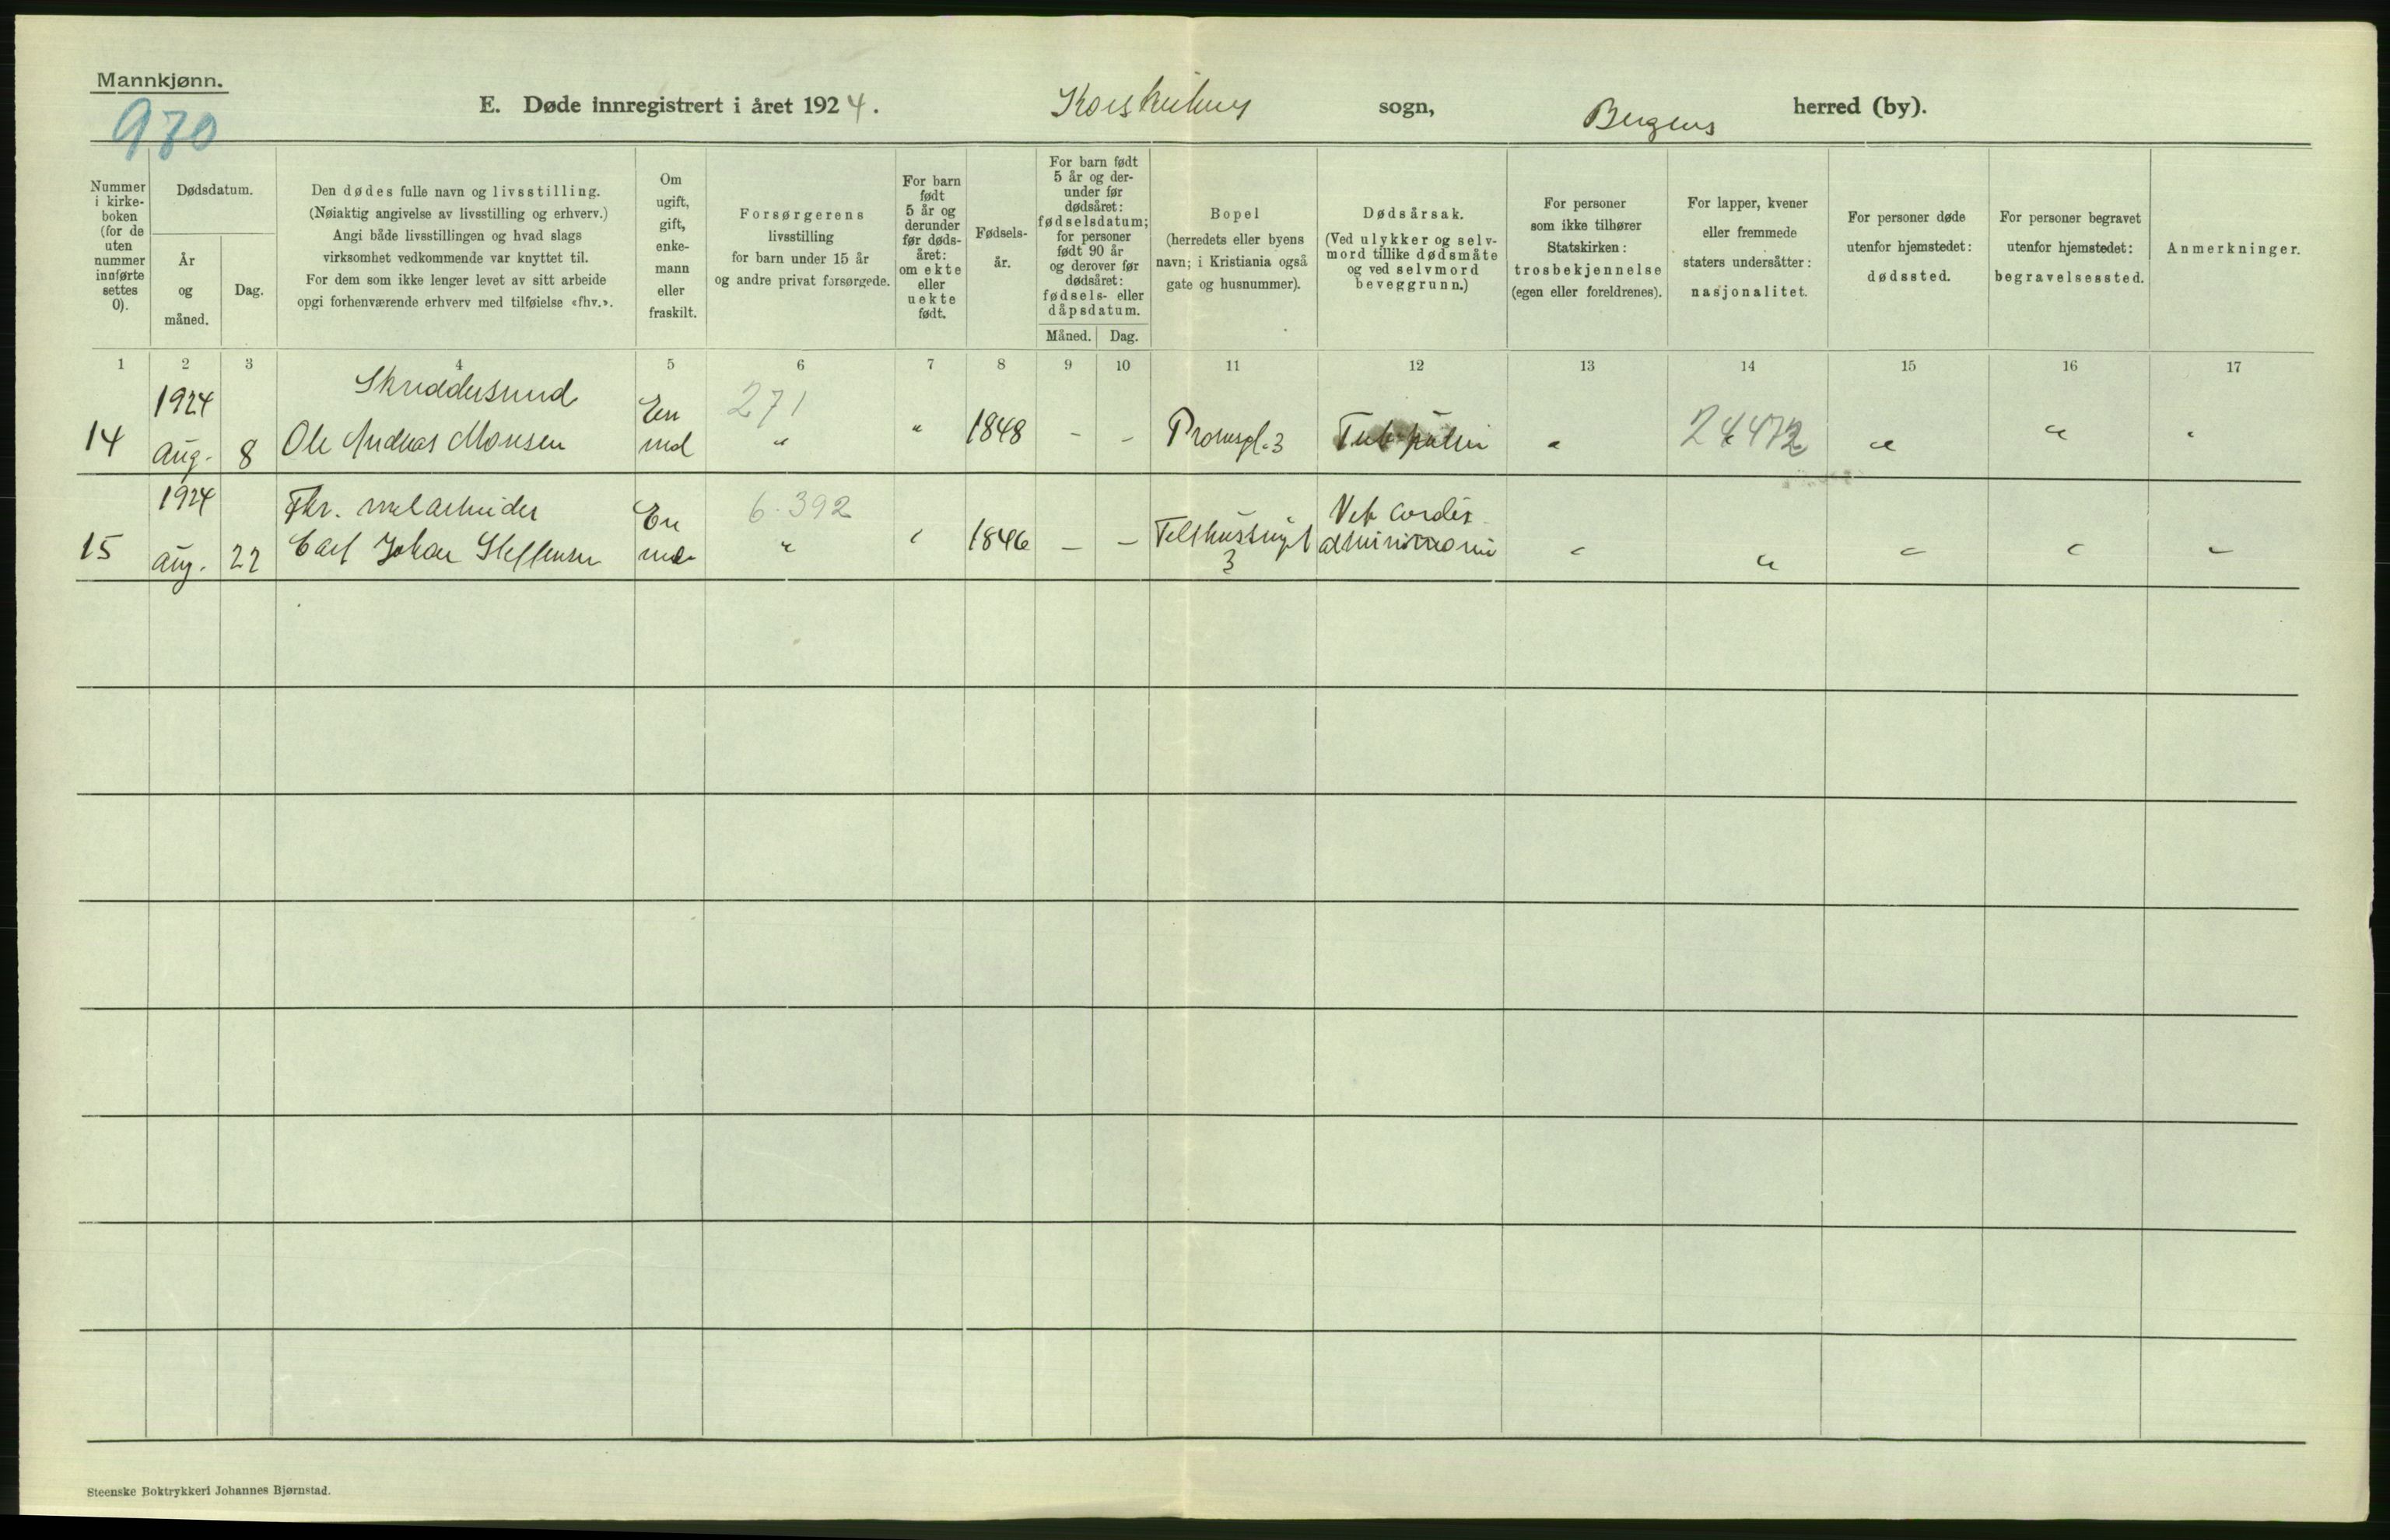 Mannkjønn.
970
E. Døde innregistrert i året 1924. Korskirkens sogn, Bergens herred (by).
Nummer i kirke-boken (for de uten nummer innførte settes 0).
Dødsdatum.
År og måned.
Dag.
Den dødes fulle navn og livsstilling.
(Nøiaktig angivelse av livsstilling og erhverv.)
Angi både livsstillingen og hvad slags
virksomhet vedkommende var knyttet til.
For dem som ikke lenger levet av sitt arbeide
opgi forhenværende erhverv med tilføielse «fhv.».
Om ugift, gift, enke-mann eller fraskilt.
Forsørgerens
livsstilling
for barn under 15 år
og andre privat forsørgede.
For barn født 5 år og derunder før døds-året: om ekte eller uekte født.
Fødsels-år.
For barn født 5 år og der-under før dødsåret: fødselsdatum; for personer født 90 år og derover før dødsåret: fødsels- eller dåpsdatum.
Måned. Dag.
Bopel
(herredets eller byens
navn; i Kristiania også
gate og husnummer).
Dødsårsak.
(Ved ulykker og selv-
mord tillike dødsmåte
og ved selvmord
beveggrunn.)
For personer
som ikke tilhører
Statskirken:
trosbekjennelse
(egen eller foreldrenes).
For lapper, kvener
eller fremmede
staters undersåtter:
nasjonalitet.
For personer døde
utenfor hjemstedet:
dødssted.
For personer begravet
utenfor hjemstedet:
begravelsessted.
Anmerkninger.
1 2 3 4 5 6 7 8 9 10 11 12 13 14 15 16 17
1924 Skræddersvend En 271
14 Aug. 8 Ole Andreas Monsen md " " 1848 - - 3 " 24472 " " "
1924 Fhv. En 6.392 Vit cordis
15 Aug. 22 Carl Johan Steffensen md " " 1846 - - " " " " "
3
Steenske Boktrykkeri Johannes Bjørnstad.